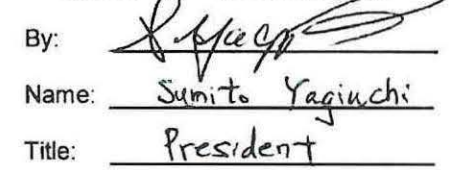 By:
Name: Sumito Yaginchi
Title: President